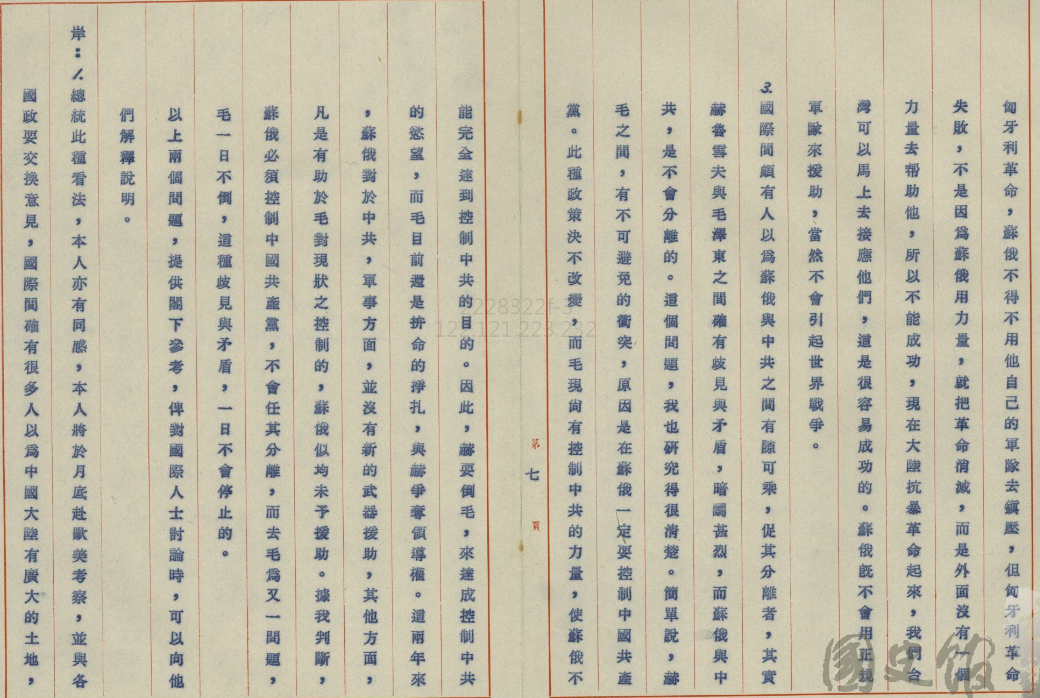 匈牙利革命，蘇俄不得不用他自己的軍隊去鎭壓，但匈牙利革命
失敗，不是因爲蘇俄用力量，就把革命消滅，而是外面沒有一個
力量去帮助他，所以不能成功，現在大陸抗暴革命起來，我們台
灣可以馬上去接應他們，這是很容易成功的。蘇俄旣不會用正規
軍隊來援助，當然不會引起世界戰爭。
3.國際間頗有人以爲蘇俄與中共之間有隙可乘，促其分離者，其實
赫魯雪夫與毛澤東之間確有歧見與矛盾，暗鬭甚烈，而蘇俄與中
共，是不會分離的。這個問題，我也硏究得很清楚。簡單說，赫
毛之間，有不可避免的衝突，原因是在蘇俄一定要控制中國共產
黨。此種政策決不改變，而毛現尙有控制中共的力量，使蘇俄不
第七頁
能完全達到控制中共的目的。因此，赫要倒毛，來達成控制中共
的慾望，而毛目前還是拚命的掙扎，與赫爭奪領導權。這兩年來
，蘇俄對於中共，軍事方面，並沒有新的武器援助，其他方面，
凡是有助於毛對現狀之控制的，蘇俄似均未予援助。據我判斷，
蘇俄必須控制中國共產黨，不會任其分離，而去毛爲又一問題，
毛一日不倒，這種歧見與矛盾，一日不會停止的。
以上兩個問題，提供閣下參考，俾對國際人士討論時，可以向他
們解釋說明。
岸：1.總統此種看法，本人亦有同感，本人將於月底赴歐美考察，並與各
國政要交換意見，國際間確有很多人以爲中國大陸有廣大的土地，
國史館